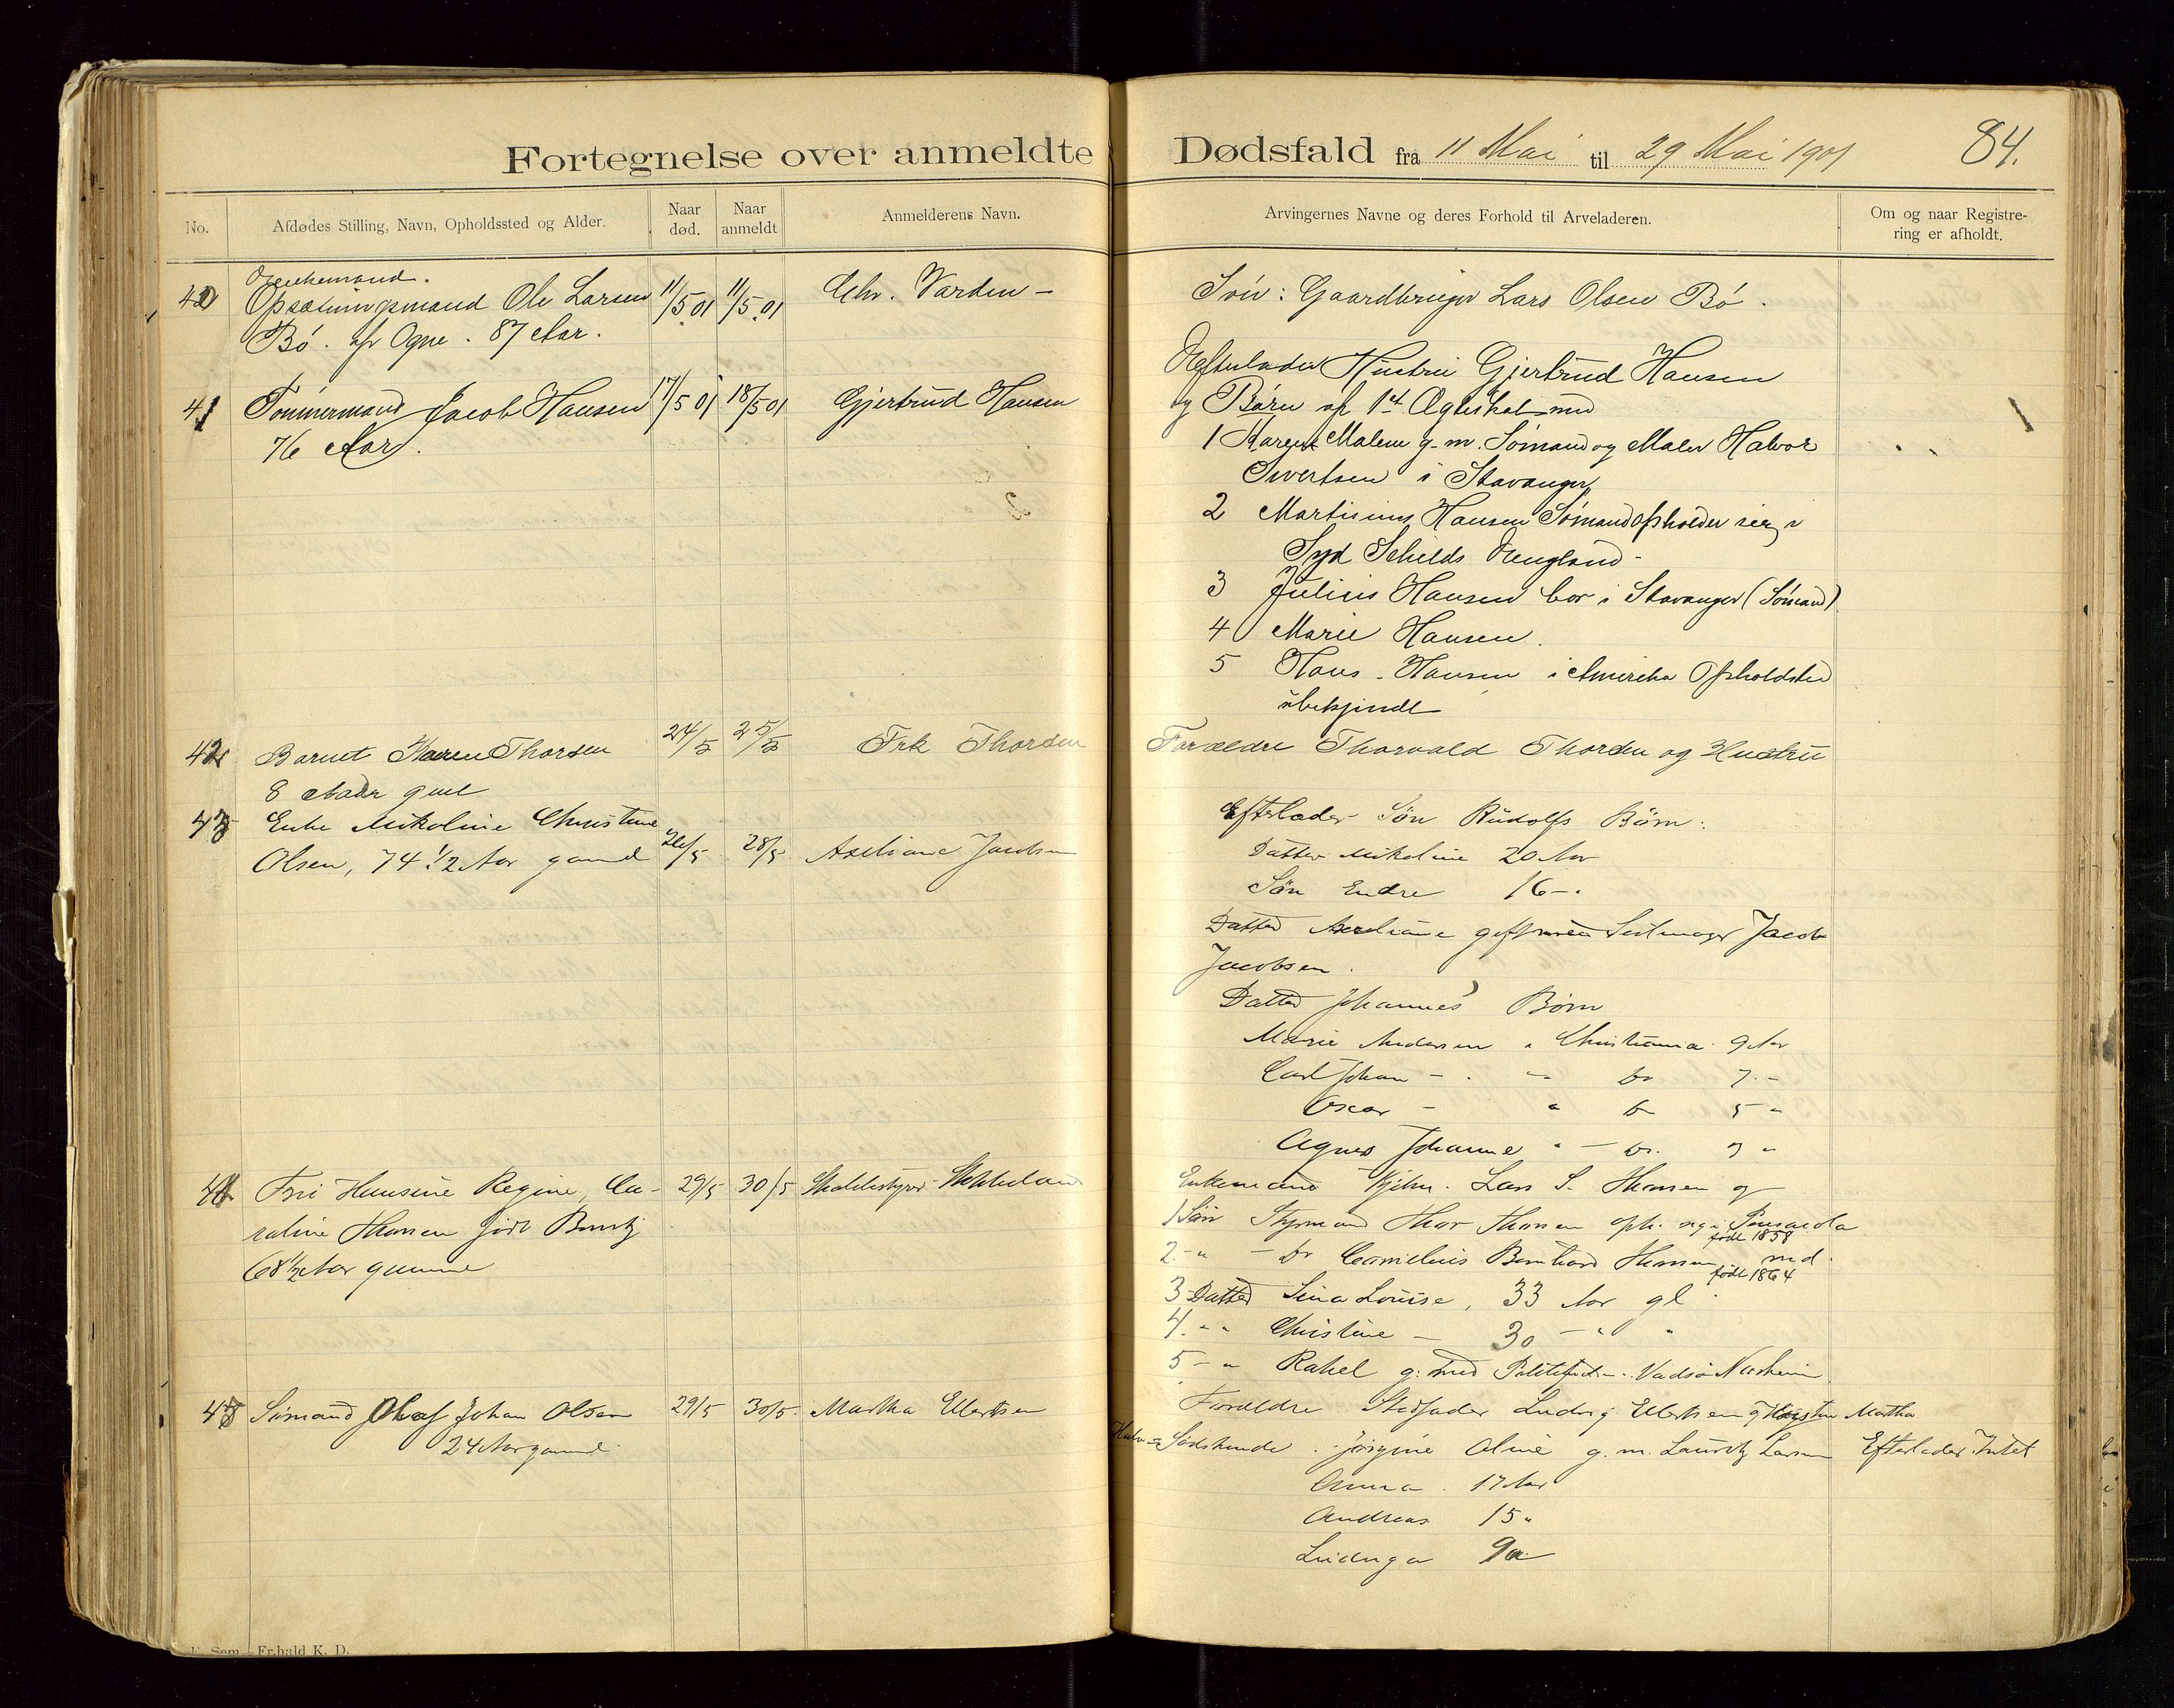 Fortegnelse over anmeldte Dødsfald fra 11 Mai til 29 Mai 1901 84.
No. Afdødes Stilling, Navn, Opholdssted og Alder. Naar død. Naar anmeldt Anmelderens Navn. Arvingernes Navne og deres Forhold til Arveladeren. Om og naar Registrering er afholdt.
Enkemand.
40 Opsætningsmand Ole Larsen 11/5 01 11/5 01 Chr. Varden – Søn: Gaardbruger Lars Olsen Bö.
Bö. af Ogne. 87 Aar.
Efterlader Hustru Gjertrud Hansen
41 Tømmermand Jacob Hansen 17/5 01 18/5 01 Gjertrud Hansen og Børn af 1st Ægteskab med
76 Aar.
1 Karen Malene g. m. Sømand og Maler Halvor
Sivertsen i Stavanger
2 Martinius Hansen Sømand opholder sig i
Syd Schilds England –
3 Julius Hansen bor i Stavanger (Sömand)
4 Marie Hansen.
5 Hans Hansen i Amerika Opholdsted
ubekjendt
42 Barnet Karen Thorsen 24/5 25/5 Frk Thorsen Forældre Thorvald Thorsen og Hustru
8 Maaneder gml
43 Enke Mikoline Christine
Olsen, 74 1/2 Aar gammel 26/5 28/5 Axeliane Jacobsen
Efterlader Søn Rudolfs Börn:
Datter Mikoline 20 Aar
Sön Endre 16 – "
Datter Axeliane gift med Seilmager Jacob
Jacobsen.
Datter Johannes' Börn
Marie Andersen i Christiania 9 Aar
Carl Johan – " – Do 7 –
Oscar – " Do 5 "
Agnes Johanne " – Do. 3 "
44 Fru Hansine Regine Ca- 29/5 30/5 Enkemand Kjøbm. Lars S. Hansen og
roline Hansen født
68 1/2 Aar gammel
1 Sön Styrmand Thor Hansen oph. sig i Pensacola
født 1858
2 " – Do Cornelius Bernhard Hansen
født 1864
3 Datter Sina Louise, 33 Aar gl
4. " " Christine – 30 – " "
5 – " Rakel g. med
45 Sömand Olaf Johan Olsen 29/5 30/5. Martha Ellertsen Forældre Stedfader Ludvig Ellertsen og Hustru Martha
24 Aar gammel
Halv– Södskende. Jörgine Oline g. m. Lauritz Larsen Efterlader Intet
Anna. 17 Aar
Andreas 15 "
Ludviga 9 "